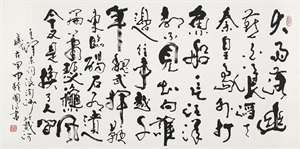 大雨落幽
燕白浪滔天
秦皇島外打
魚船一片汪洋
都不見知向誰
邊往事越千
年魏武揮鞭
東臨碣石有遺
篇蕭瑟秋風
今又是換了人間
毛澤東詞浪淘沙北戴河